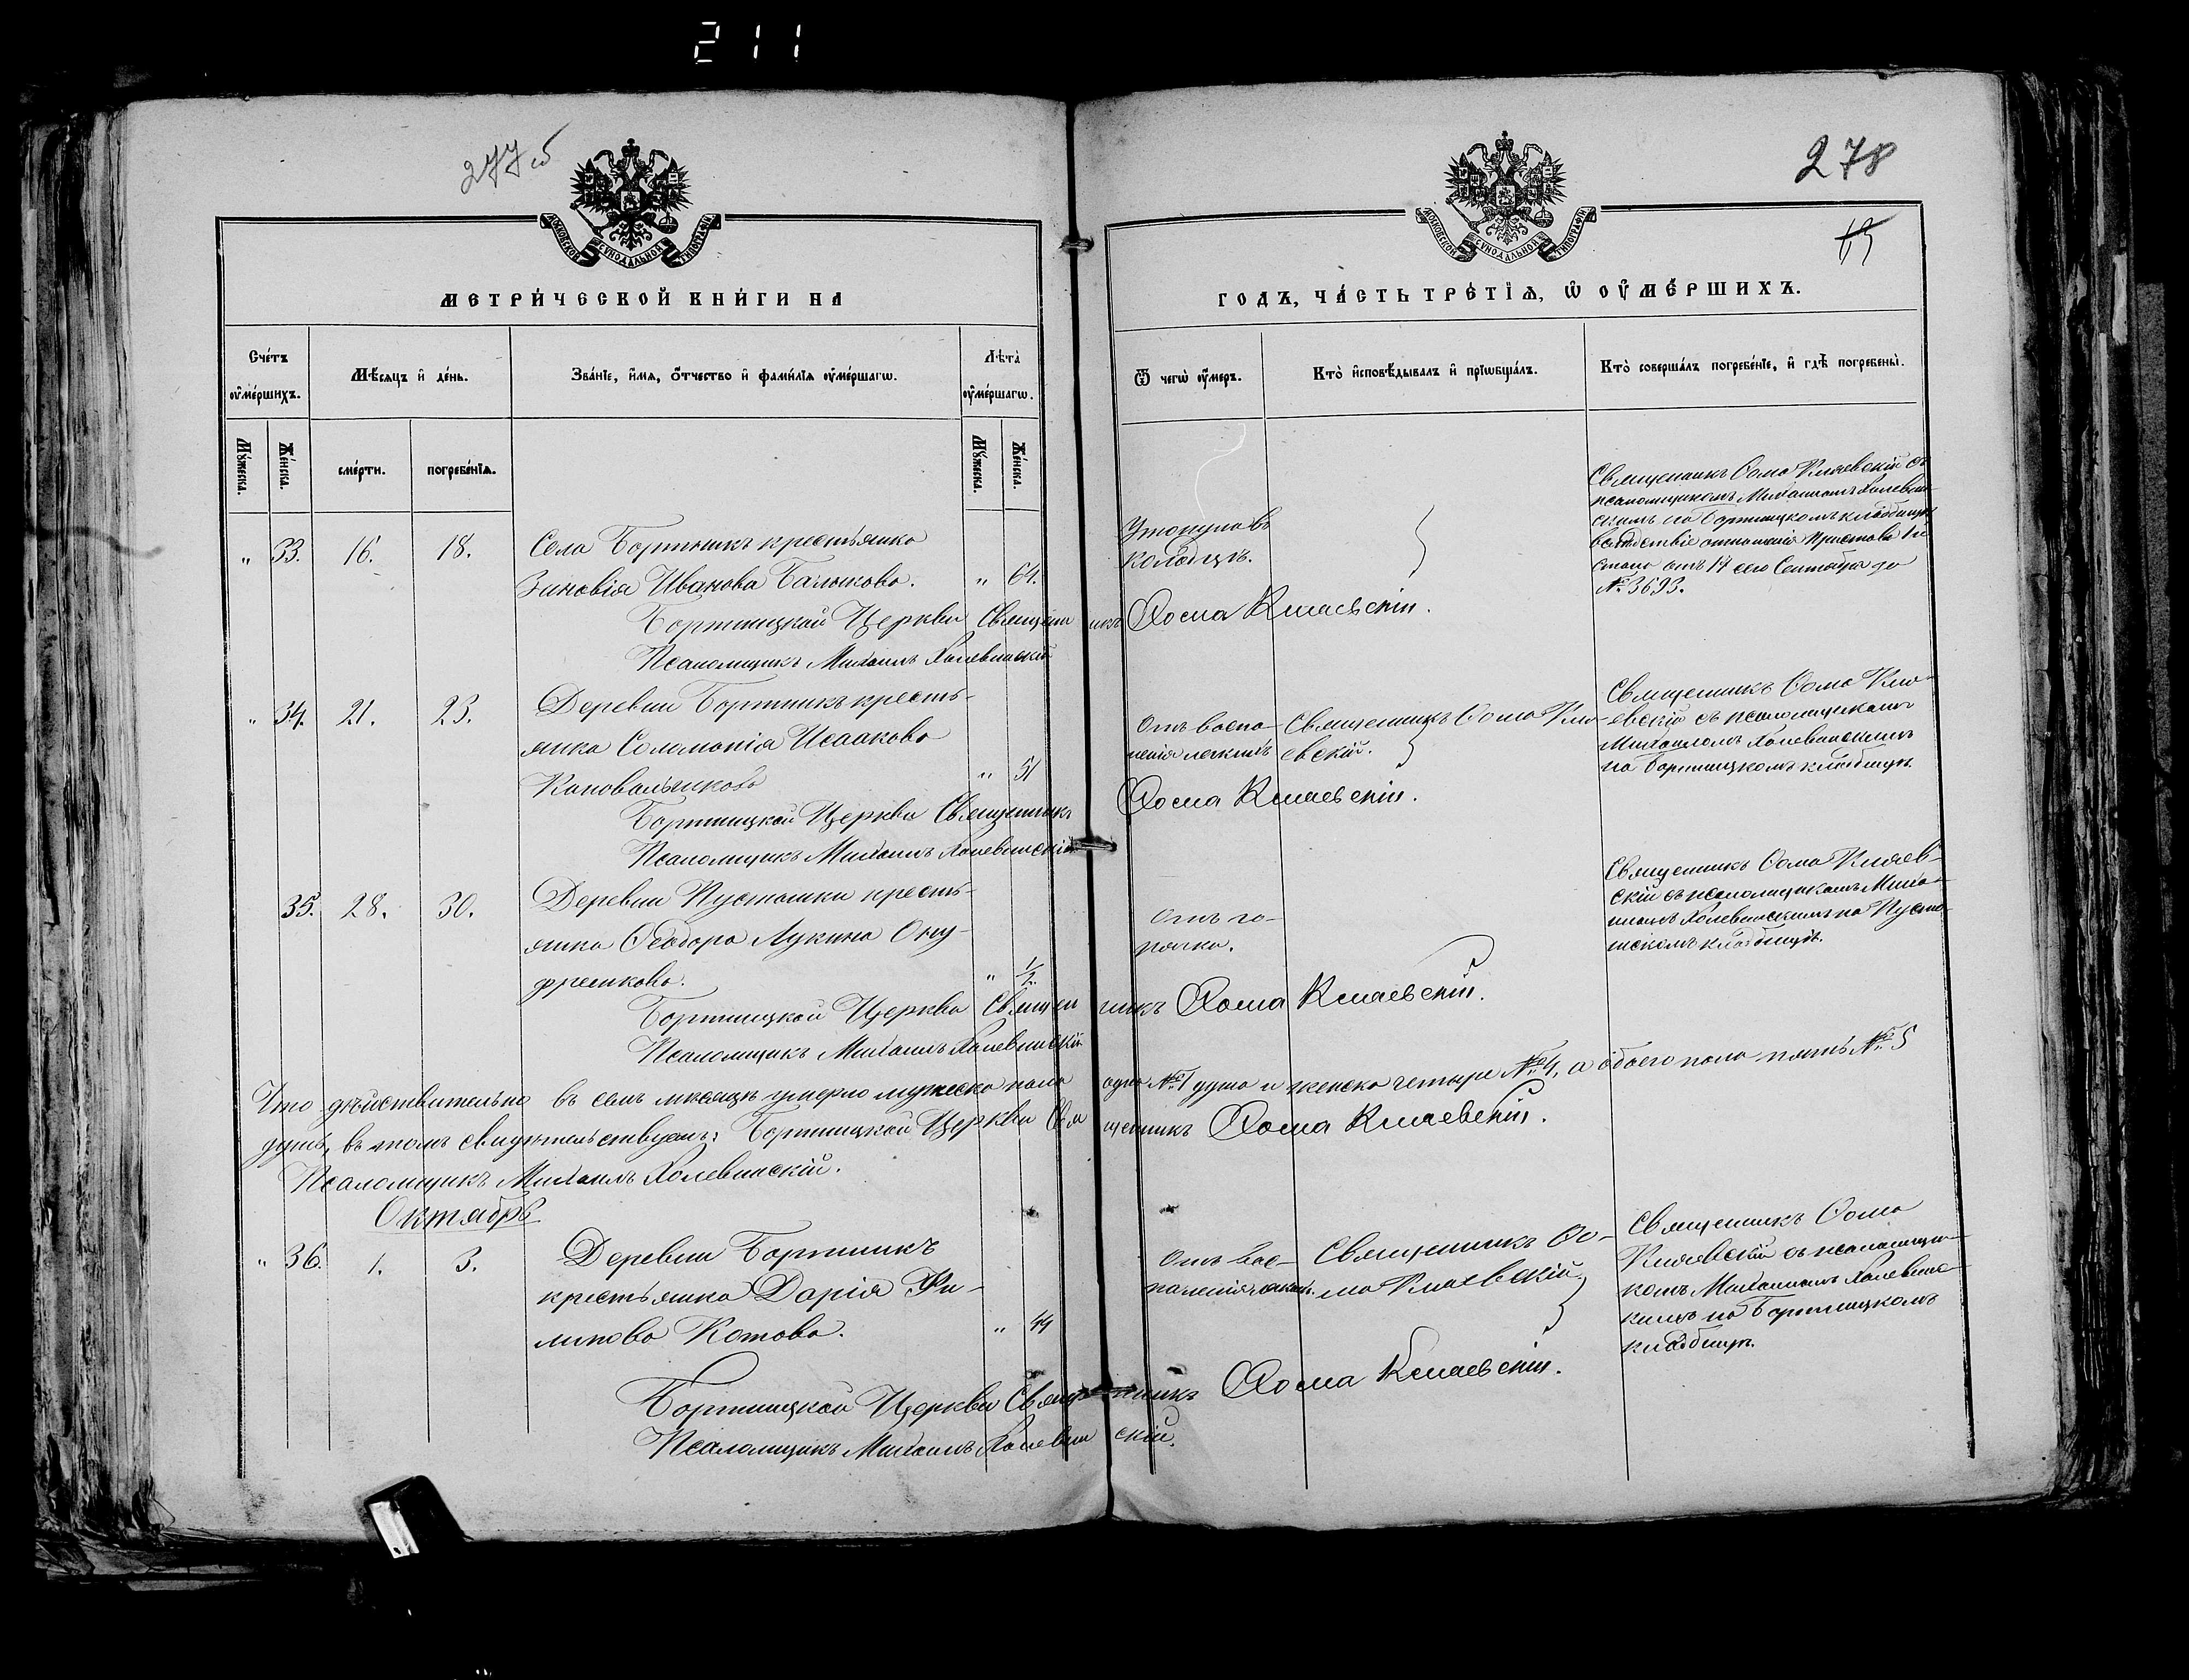 211
277об
278
МОСКОВСКОЙ СѴНОДАЛЬНОЙ ТИПОГРАФІИ
МОСКОВСКОЙ СѴНОДАЛЬНОЙ ТИПОГРАФІИ
МЕТРИ́ЧЕСКОЙ КНИ́ГИ НА
ГОДЪ, ЧА́СТЬ ТРЕ́ТІѦ, Ѡ҆ ОУ҆МЕ́РШИХЪ.
Сче́тъ оу҆ме́ршихъ.
Мѣ́сяцъ и҆ де́нь.
Зва́нїе, и҆́мѧ, ѻ҆́тчество и҆ фами́лїѧ оу҆ме́ршагѡ.
Лѣта̀ оу҆ме́ршагѡ.
Ѿ чегѡ̀ оу҆́меръ.
Кто̀ и҆сповѣ́дывалъ и҆ прїѡбща́лъ.
Кто̀ соверша́лъ погребе́нїе, и҆ гдѣ̀ погребены̀.
Мꙋ́жеска.
Же́нска.
сме́рти.
погребе́нїѧ.
Мꙋ́жеска.
Же́нска.
„ 33. 16. 18. Села Бортникъ крестьянка
Зиновія Иванова Балыкова. „ 64.
Утонула въ
колодцѣ.
Священникъ Ѳома Кляевскій съ
псаломщикомъ Михаиломъ Холевин-
скимъ на Бортницкомъ кладбищѣ
вслѣдствіе отношенія Пристава 1го
стана отъ 17 сего Сентября за
№ 3693.
Бортницкой Церкви Священникъ Ѳома Кляевскій.
Псаломщикъ Михаилъ Холевинскій
„ 34. 21. 23. Деревни Бортникъ кресть-
янка Соломонія Исаакова
Коновальчикова „ 51
Отъ воспа-
ленія легкихъ
Священникъ Ѳома Кля-
евскій.
Священникъ Ѳома Кля-
евскій съ псаломщикомъ
Михаиломъ Холевинскимъ
на Бортницкомъ кладбищѣ.
Бортницкой Церкви Священникъ Ѳома Кляевскій.
Псаломщикъ Михаилъ Холевинскій
35. 28. 30. Деревни Пустошки кресть-
янка Ѳеодора Лукина Ону-
френкова. „ 1/2.
Отъ го-
рячки.
Священникъ Ѳома Кляев-
скій съ псаломщикомъ Миха-
иломъ Холевинскимъ на Пусто-
шскомъ кладбищѣ.
Бортницкой Церкви Священникъ Ѳома Кляевскій.
Псаломщикъ Михаилъ Холевинскій
Что дѣйствительно въ семъ мѣсяцѣ умерло мужеска пола одна №1 душа и женска четыре №4, а обоего пола пять №5
душъ, въ томъ свидѣтельствуемъ: Бортницкой Церкви Священникъ Ѳома Кляевскій.
Псаломщикъ Михаилъ Холевинскій.
Октябрь
„ 36. 1. 3. Деревни Бортникъ
крестьянка Дарія Фи-
липова Котова. „ 44
Отъ вос-
паленія легкихъ.
Священникъ Ѳо-
ма Кляевскій.
Священникъ Ѳома
Кляевскій съ псаломщи-
комъ Михаиломъ Холевинс-
кимъ на Бортницкомъ
кладбищѣ.
Бортницкой Церкви Священникъ Ѳома Кляевскій.
Псаломщикъ Михаилъ Холевинскій.